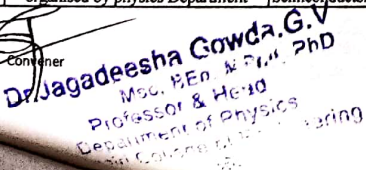 organised by physics Department
Convener
Dr. Jagadeesha Gowda. G.V
Msc, BEd, M Phil, PhD
Professor & Head
Department of Physics
College of